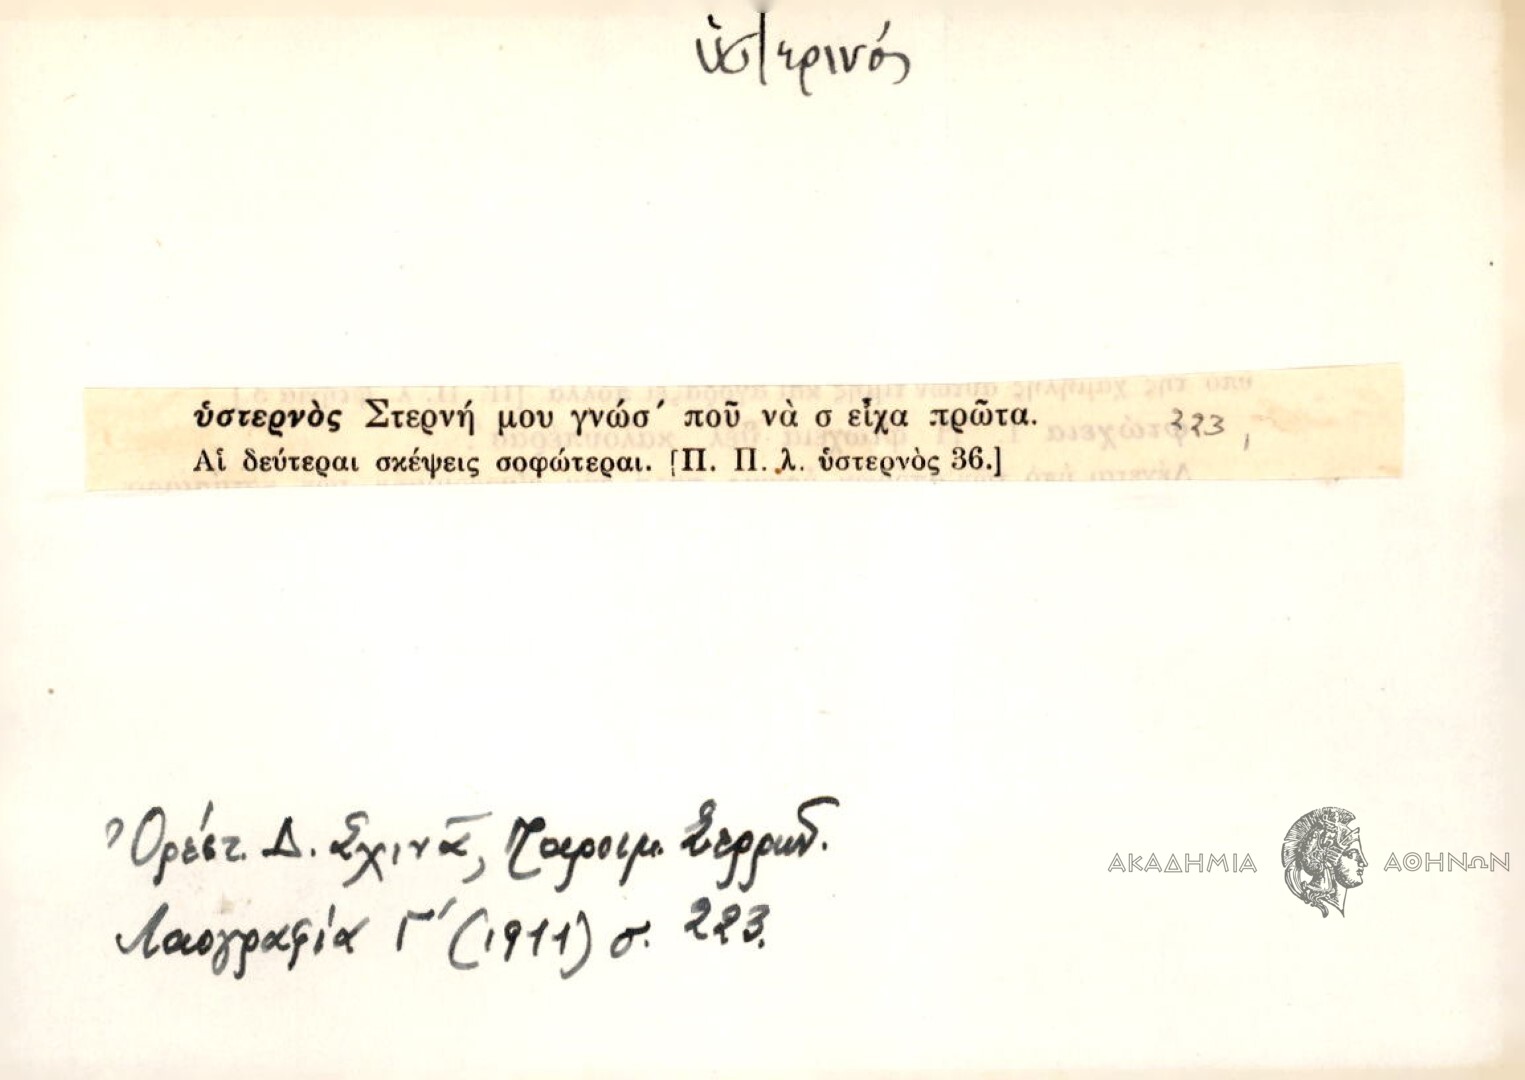 ὑστερινός
ὑστερνὸς Στερνή μου γνώσ' ποῦ νὰ σ εἶχα πρῶτα. 223,
Αἱ δεύτεραι σκέψεις σοφώτεραι. [Π. Π. λ. ὑστερνὸς 36.]
Ὀρέστ. Δ. Σχινᾶ, Παροιμ. Σερρῶν.
Λαογραφία Γ' (1911) σ. 223.
ΑΚΑΔΗΜΙΑ ΑΘΗΝΩΝ